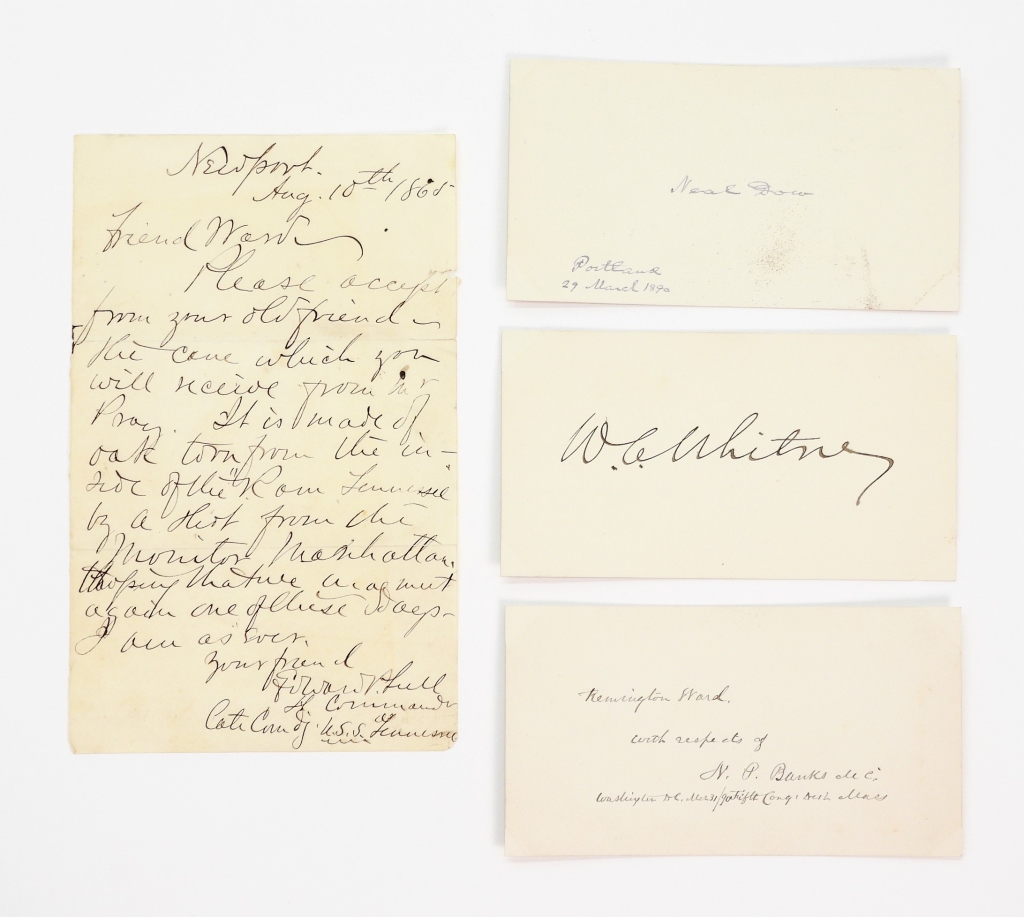 Newport.
Aug. 10th 1865
Friend Ward
Please accept
from your old friend
the cane which you
will receive from Mr
Pray. It is made of
oak torn from the in-
side of the "Ram Tennessee
by a shot from the
Monitor Manhattan.
Hoping that we may meet
again one of these days-
I am as ever.
your friend
Edward P. Lull
Lt Commander
Late Comdg. U.S.S. Tennessee
Neal Dow
Portland
29 March 1890
W. C. Whitney
Remington Ward.
with respects of
N. P. Banks M.C.
Washington D.C. Mar 31/90 Fifth Cong: Dist. Mass